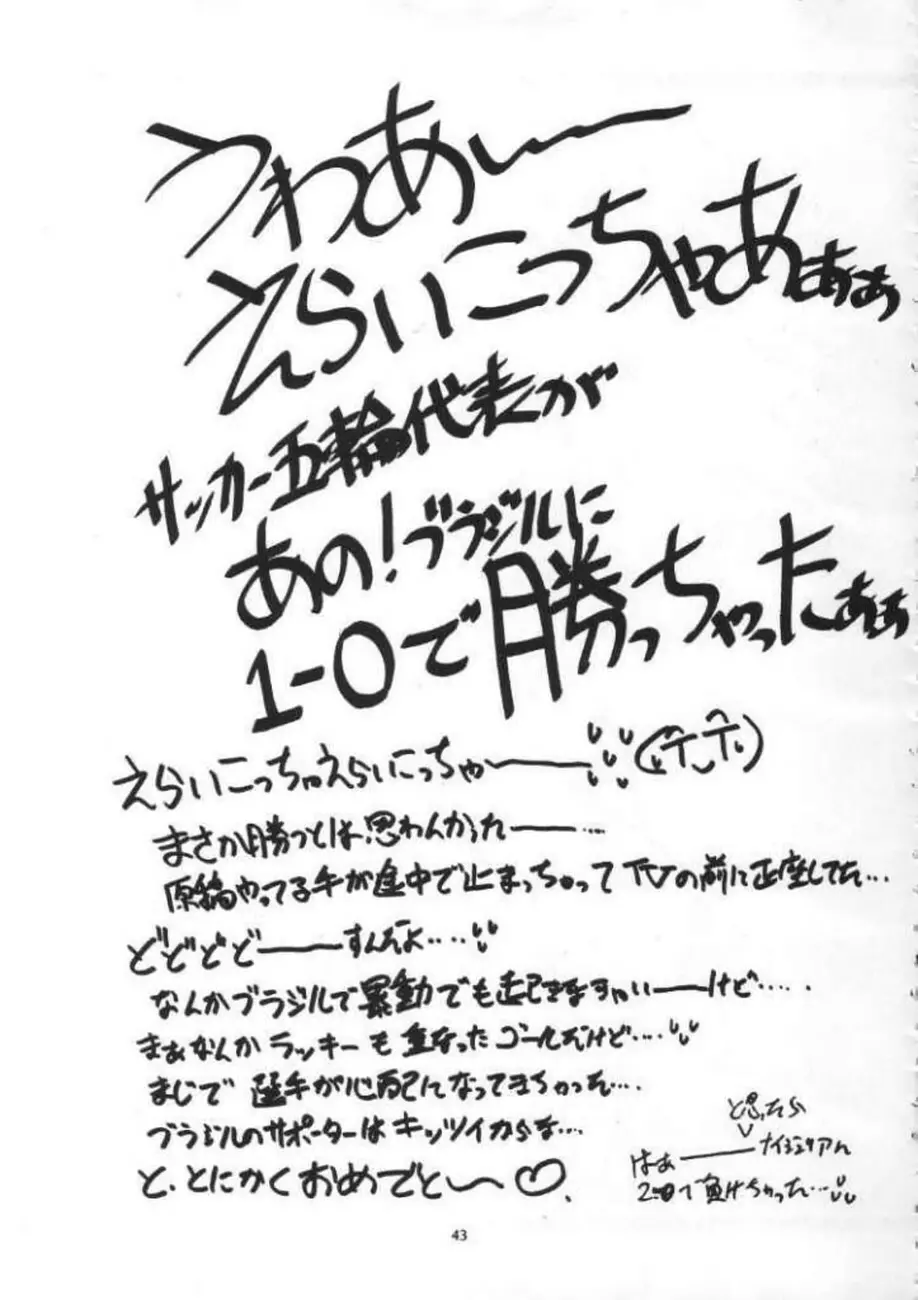 うわあぃーー
えらいこっちゃあぁぁ
サッカー五輪代表が
あの!ブラジルに
1-0で勝っちゃったぁぁ
えらいこっちゃえらいこっちゃーー
まさか勝つとは思わんかったーー…
原稿やってる手が途中で止まっちゃってTVの前に正座してた…
どどどどーーすんだよ‥‥
なんかブラジルで暴動でも起きなきゃいーーけど……
まぁなんかラッキーも重なったゴールだけど‥‥
まじで選手が心配になってきちゃった…
ブラジルのサポーターはキッツイからな…
と、とにかくおめでと〜♡。
と思ったら
はぁーーナイジェリアに
2-0で負けちゃった…
43